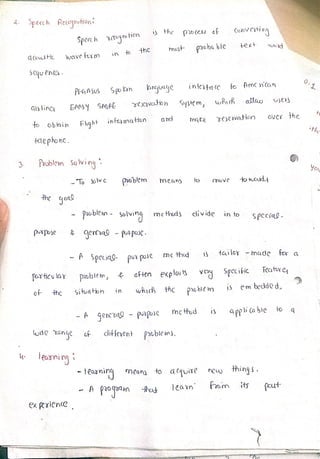 2. Speech Recognition:
Speech recognition is the process of converting
acoustic wave form in to the most probable text word
sequences.
PEGASUS Spoken language interface to American
airlines EAASY SABRE reservation system, which allow users
to obtain flight information and make reservation over the
telephone.
3. Problem solving:
- To solve problem means to move towards
the goal
- problem-solving methods divide in to special-
purpose & general-purpose.
- A special-purpose method is tailor-made for a
particular problem, & often exploits very specific features
of the situation in which the problem is embedded.
- A general-purpose method is applicable to a
wide range of different problems.
4. learning:
- learning means to acquire new things.
- A program that learn from its past
experience.